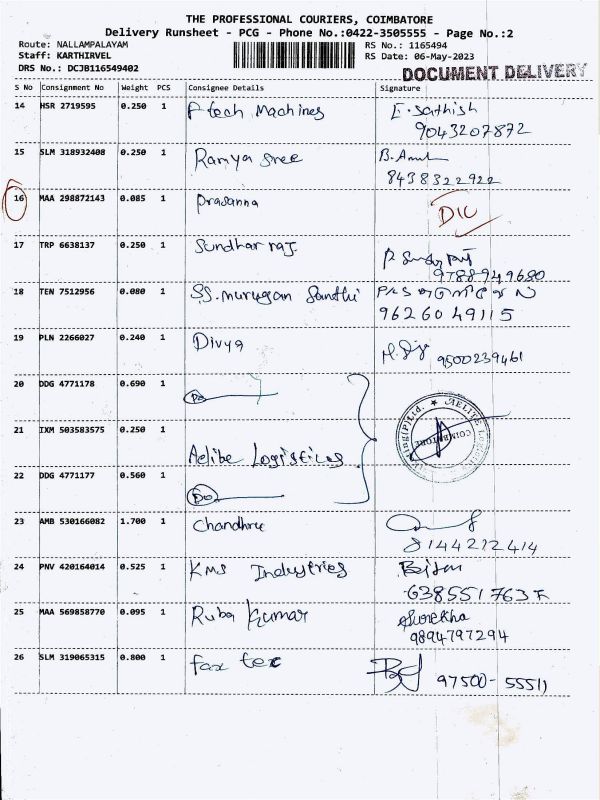 THE PROFESSIONAL COURIERS, COIMBATORE
Delivery Runsheet - PCG - Phone No.:0422-3505555 - Page No.:2
Route: NALLAMPALAYAM RS No.: 1165494
Staff: KARTHIRVEL RS Date: 06-May-2023
DRS No.: DCJB116549402 DOCUMENT DELIVERY
S No Consignment No Weight PCS Consignee Details Signature
14 HSR 2719595 0.250 1 P tech Machines E. Sathish
9043207872
15 SLM 318932408 0.250 1 Ramya Sree B.
8438322922
16 MAA 298872143 0.085 1 Prasanna DIC
17 TRP 6638137 0.250 1 Sundhar raj.
9788949680
18 TEN 7512956 0.080 1 S.S. murugan Sandhi
9626049115
19 PLN 2266027 0.240 1 Divya 9500239461
20 DDG 4771178 0.690 1 Do
21 IXM 503583575 0.250 1 Aelibe Logistics COIMBATORE
22 DDG 4771177 0.560 1 Do
23 AMB 530166082 1.700 1 Chandhru
8144212414
24 PNV 420164014 0.525 1 KMS Industries
25 MAA 569858770 0.095 1 Ruba Kumar Surekha
9894797294
26 SLM 319065315 0.800 1 fax tec 97500-55511